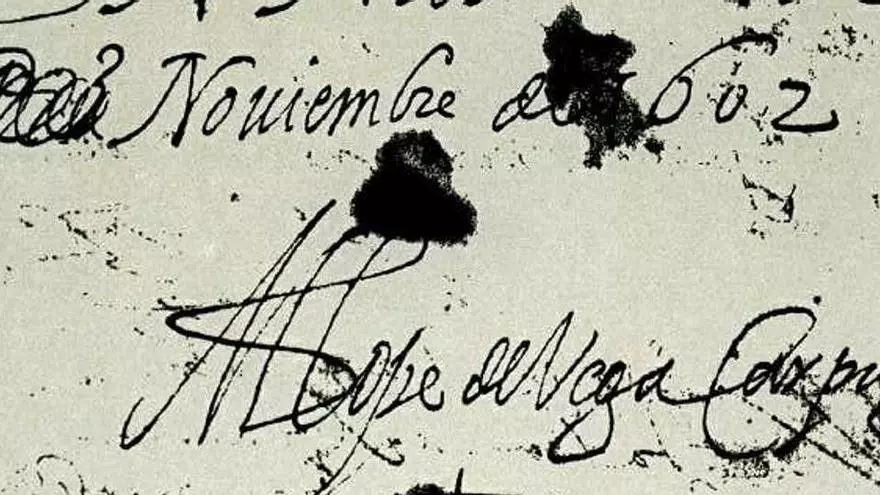 Noviembre de 1602
MLope de Vega Carpi